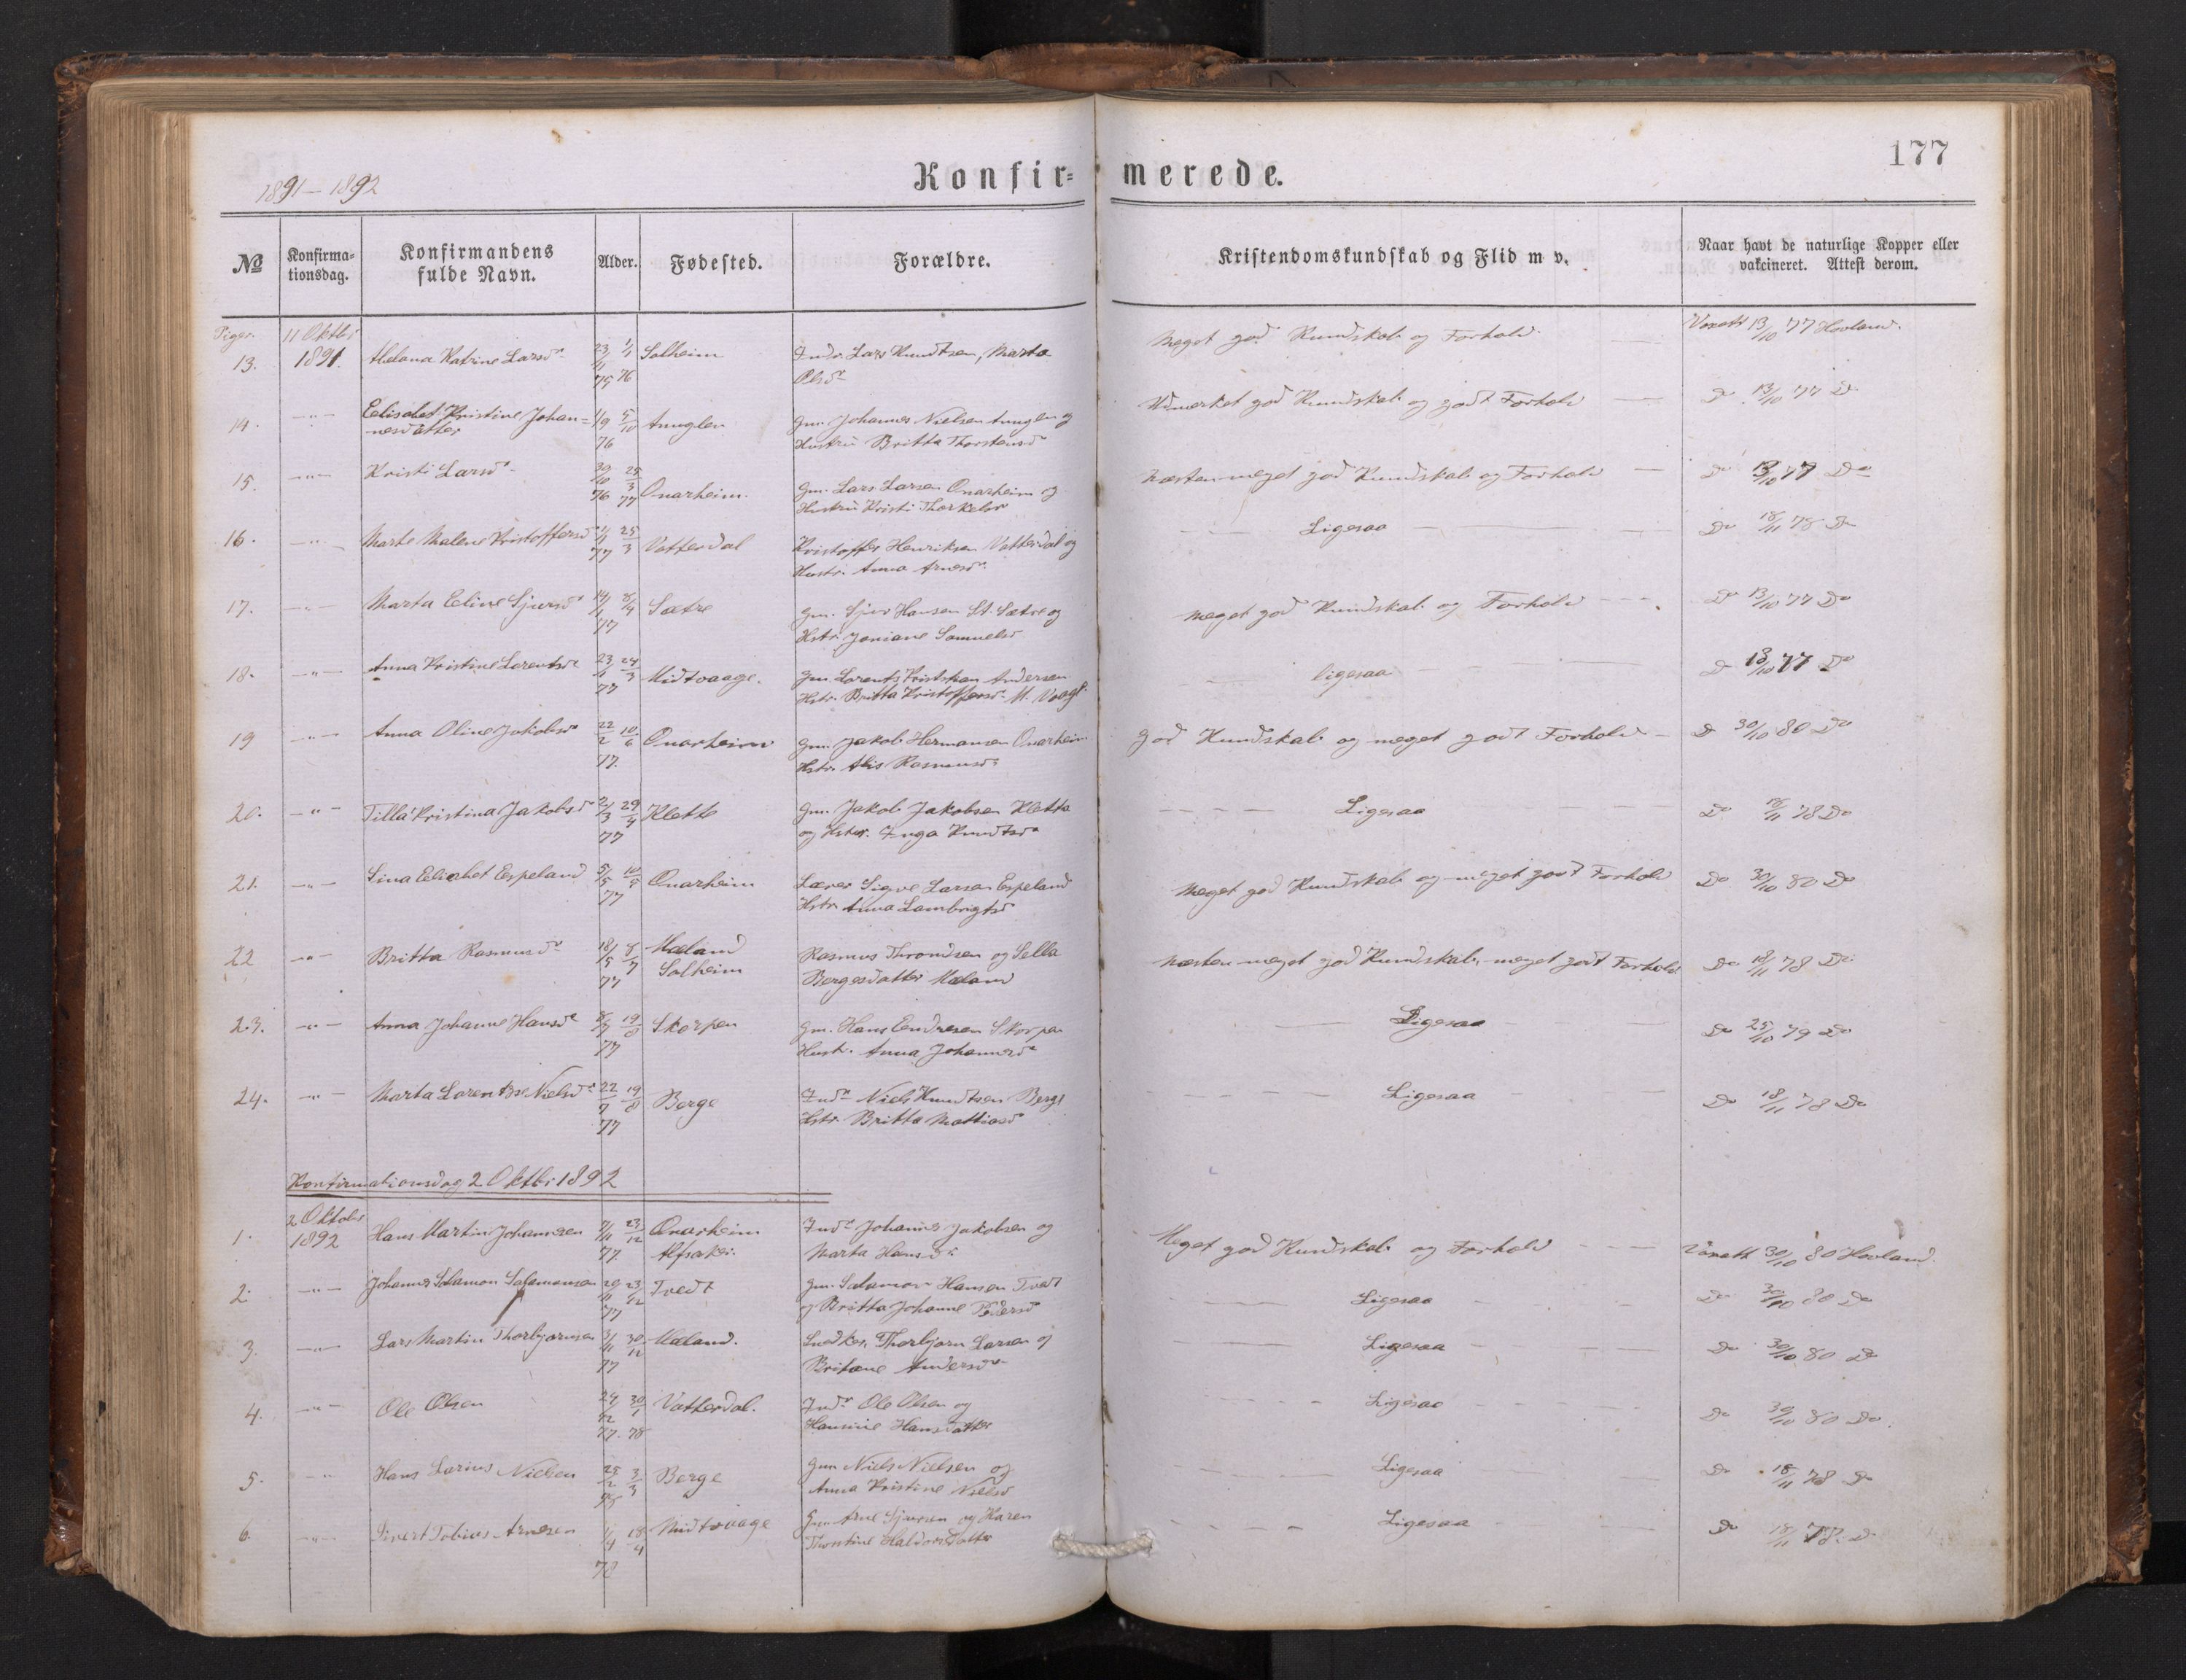 177
1891-1892
Konfir= merede.
№ Konfirma= tionsdag. Konfirmandens fulde Navn. Alder. Fødested. Forældre. Kristendomskundskab og Flid m v. Naar havt de naturlige Kopper eller vakcineret. Attest derom.
Piger. 11 Oktbr
13. 1891. Helana Katrine Larsdr 23/11 75 1/1 76 Solheim Indr. Lars Knudtsen, Marta Olsdr Meget god Kundskab og Forhold. 13/10 77 Hovland.
14. -"- Eelisabet Kristine Johan= nesdatter 1/9 5/10 76 Anuglen Gm. Johannes Nielsen Anuglen og Hustru Britta Thorstensdr Udmærket god Kundskab og godt Forhold Do 13/10 77 Do
15. -"- Kristi Larsdr 30/10 76 25/3 77 Onarheim. Gm. Lars Larsen Onarheim og Hustru Kristi Thorkelsdr Næsten meget god Kundskab og Forhold Do 13/10 77 Do
16. -"- Marte Malene Kristoffersd 1/1 25/3 77 Vatterdal Kristoffer Henriksen Vatterdal og Hustr. Anna Arnesdr Ligesaa Do 18/11 78 Do
17. -"- Marta Eeline Sjursdr 14/1 8/4 77 Sætre Gm. Sjur Hansen St. Sætre og Hstr. Joniane Samuelsd Meget god Kundskab og Forhold Do 13/10 77 Do
18. -"- Anna Kristine Lorentsdr 23/1 24/3 77 Midtvaage. Gm. Lorents Kristian Andersen Hstr. Britta Kristoffersdr M. Vaage ligesaa Do 13/10 77 Do
19 -"- Anna Oline Jakobsdr 22/2 10/6 77. Onarheim Gm. Jakob Hermansen Onarheim Hstr. Alis Rasmusdr God Kundskab og meget godt Forhold Do 30/10 80 Do
20. -"- Tilla Kristina Jakobsdr 2/3 29/4 77 Klette Gm. Jakob Jakobsen Kletta og Hstr. Inga Knudtsdr Ligesaa Do 18/11 78 Do
21. -"- Sina Eelisabet Espeland 5/5 10/5 77 Onarheim Lærer Sigve Larsen Espeland Hstr Anna Lambrigtsd Meget god Kundskab og meget godt Forhold Do 30/10 80 Do
22 -"- Britta Rasmusdr 18/5 8/7 77 Mæland Solheim Rasmus Throndsen og Sella Bergesdatter Mæland Næsten meget god Kundskab, meget godt Forhold Do 18/11 78 Do
23. -"- Anna Johanne Hansdr 19/8 77 Skorpen Gm. Hans Eendresen Skorpen Hustr. Anna Johannesdr Ligesaa Do 25/10 79 Do
24. -"- Marta Lorentse Nielsdr 22/7 19/8 77 Berge Indr Niels Knudtsen Berge Hstr. Britta Mattiasdr Ligesaa Do 18/11 78 Do
Konfirmationsdag 2 Oktbr 1892
2 Oktobr
1. 1892 Hans Martin Johannesen 7/11 23/12 77. Onarheim Indr Johannes Jakobsen og Marta Hansdr Meget god Kundskab og Forhold 30/10 80 Hovland.
2. -"- Johannes Salamon Salamonsen 20/11 23/12 77 Tvedt Gm. Salamon Hansen Tvedt og Britta Johanne Pedersdr Ligesaa Do 30/10 80 Do
3. -"- Lars Martin Thorbjørnsen 3/11 30/12 77 Mæland. Snedker Thorbjørn Larsen og Britane Andersdr Ligesaa Do 30/10 80 Do
4. -"- Ole Olsen 24/12 77. 30/1 78 Vatterdal. Indr Ole Olsen og Hansine Hansdatter Ligesaa Do 30/10 80 Do.
5. -"- Hans Larius Nielsen 25/2 3/3 78 Berge Gm Niels Nielsen og Anna Kristine Nielsd Ligesaa Do 18/11 78 Do
6. -"- Sivert Tobias Arnesen 1/4 18/4 78 Midtvaage Gm Arne Sjursen og Karen Thorstine Haldorsdatter Ligesaa Do 18/11 78. Do